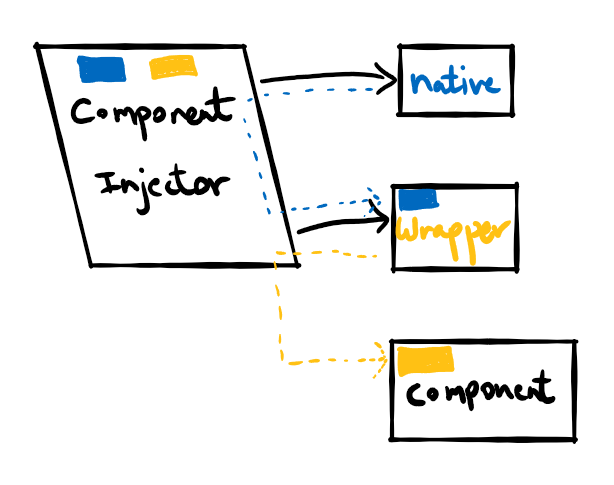 Component
Injector
native
Wrapper
Component